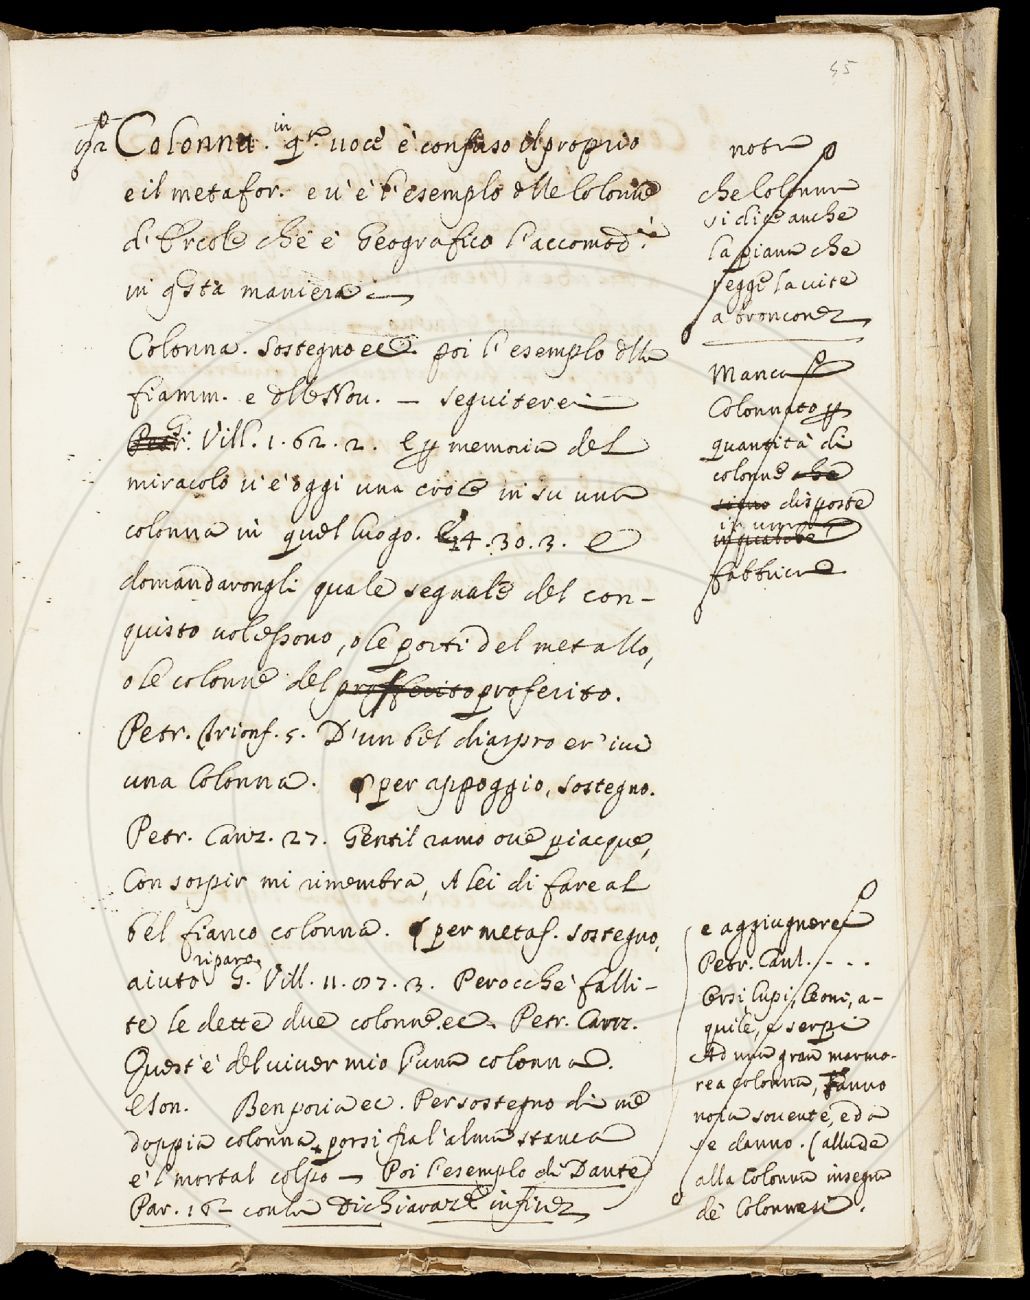 45
Colonna. in q.ta voce è confuso il proprio
e il metafor. e v'è l'esemplo dlle Colonne
d'Ercole che è Geografico l'accomod.
in qsta maniera —
Colonna. Sostegno ec. poi l'esemplo dlla
fiamm. e dlle Nov. — seguiterei —
G. Vill. 1. 62. 2. E p memoria del
miracolo v'è oggi una croce in su una
colonna in quel luogo. E 4. 30. 3. E
domandarongli quale segnale del con-
quisto volessono, o le porti del metallo,
o le colonne del profferito proferito.
Petr. Trionf. 5. D'un bel diaspro er' ivi
una Colonna. § per appoggio, sostegno.
Petr. Canz. 27. Gentil ramo ove piacque,
Con sospir mi rimembra, A lei di fare al
bel fianco colonna. § per metaf. sostegno,
aiuto riparo. G. Vill. 11. 87. 3. Perocchè falli-
te le dette due colonne. ec. Petr. Canz.
Quest'è del viver mio l'una colonna.
e Son. Ben poria ec. Per sostegno di me
doppia colonna porsi fra l'alma stanca
e 'l mortal colpo — Poi l'esemplo di Dante
Par. 16 — con la Dichiaraz. in fine
nota
che Colonna
si dice anche
la pianta che
regge la vite
a bronconez
Manca
Colonnato p
quantità di
colonne che
segno disposte
in una
fabbrica
e aggiugnerei
Petr. Cant. - - -
Orsi lupi, leoni, a-
quile, e serpi
Ad una gran marmo-
rea colonna, Fanno
noia sovente, ed a
se danno. (allude
alla Colonna insegna
de' Colonnesi.